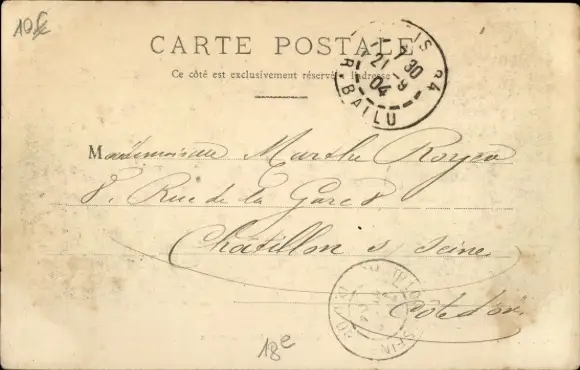 10€
CARTE POSTALE
Ce côté est exclusivement réservé à l'adresse
IS 84
7 30
21 -9
04
R. BALLU
Mademoiselle Marthe
8, Rue de la Gare 8
Châtillon s/ Seine
Côte d'or
18e